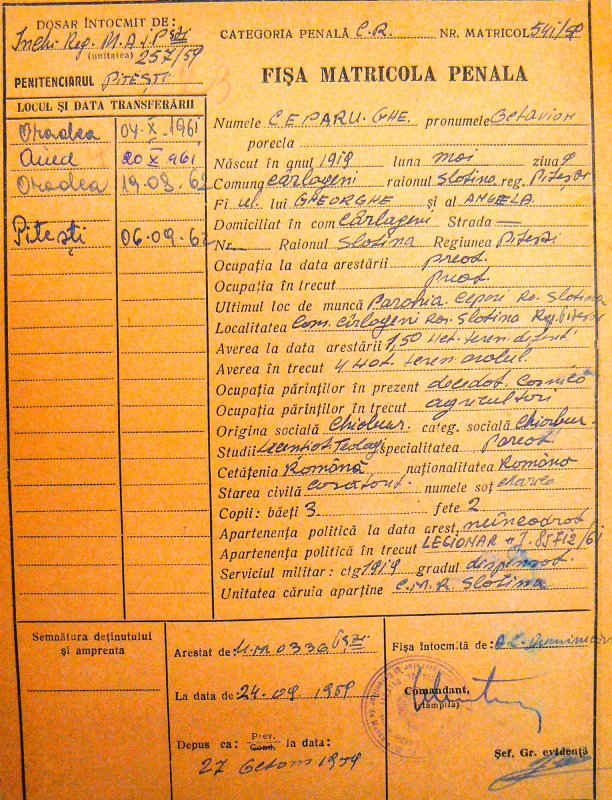 DOSAR ÎNTOCMIT DE:
Închi Reg. M.A.I. Pști
(unitatea) 257/59
PENITENCIARUL PITEȘTI
CATEGORIA PENALĂ C.R. NR. MATRICOL 541/59
FIȘA MATRICOLA PENALA
LOCUL ȘI DATA TRANSFERĂRII
Oradea 04.X.1961
Aiud 20 X 961
Oradea 19.08.62
Pitești 06.09.62
Numele CEPARU.GHE. pronumele Octavian
porecla
Născut în anul 1919 luna mai ziua 9
Comuna Cârlogeni raionul Slatina reg. Pitești
Fi ul. lui GHEORGHE și al ANGELA
Domiciliat în com Cârlogeni Strada —
Nr. — Raionul Slatina Regiunea Pitești
Ocupația la data arestării preot
Ocupația în trecut preot.
Ultimul loc de muncă Parohia Ceparı Ra. Slatina
Localitatea Com. Cârlogeni Rai. Slatina Reg. Pitești
Averea la data arestării 1,50 Het. teren
Averea în trecut 4 Hot. teren arabil
Ocupația părinților în prezent decedat
Ocupația părinților în trecut agricultori
Origina socială Chiabur. categ. socială Chiabur.
Studii Licențiat Teologi specialitatea Preot.
Cetățenia Română naționalitatea Română
Starea civilă Casatorit. numele soț
Copii: băeți 3 fete 2
Apartenența politică la data arest. neîncadrat
Apartenența politică în trecut LEGIONAR
Serviciul militar: ctg 1919 gradul dispensat
Unitatea căruia aparține C.M.R. Slatina
Semnătura deținutului
și amprenta
Arestat de: U.M. 0336
La data de 24-09 1959
Depus ca: Prev. Cond. la data:
27 Octom 1959
Fișa întocmită de:
Comandant,
(ștampila)
Șef. Gr. evidență